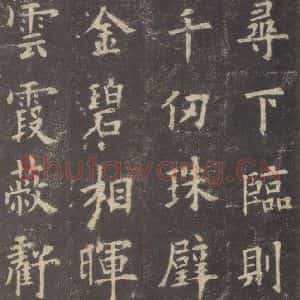 尋下臨則
千仞珠璧
金碧相暉
雲霞蔽虧
Shufawang.Cn